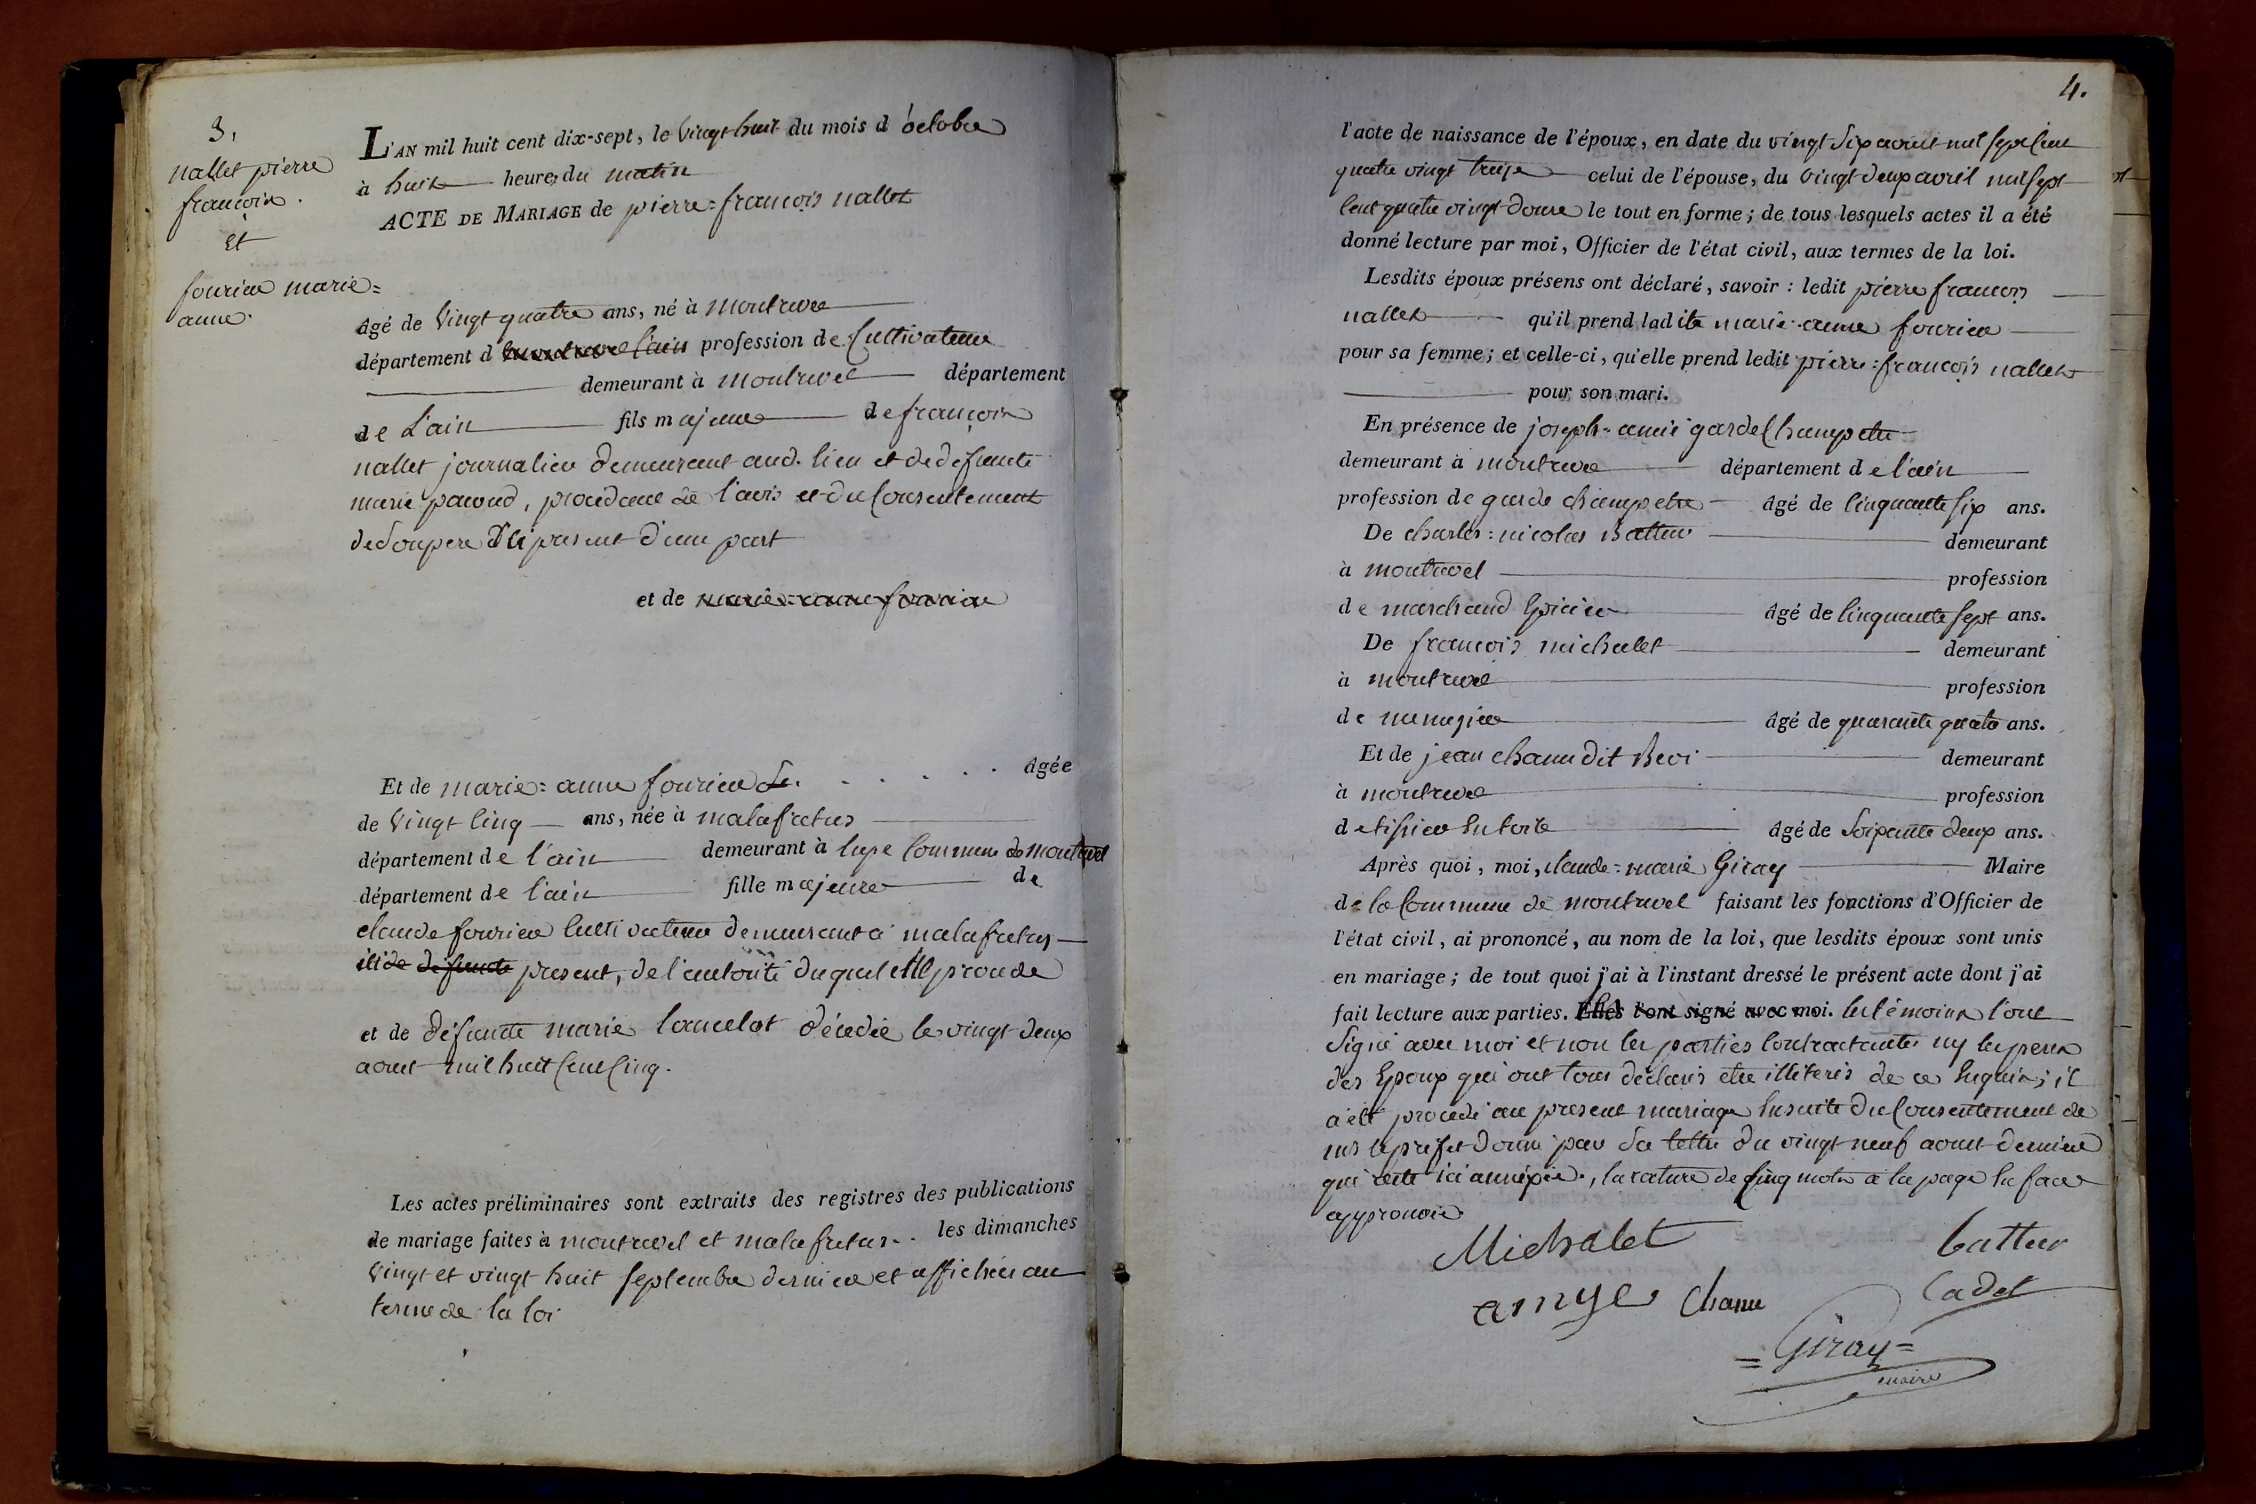 3.
nallet pierre
françois.
Et
fourier marie=
anne.
L'AN mil huit cent dix-sept, le vingt huit du mois d'octobre
à huit heures du matin
ACTE DE MARIAGE de pierre=françois nallet
âgé de vingt quatre ans, né à montrevel
département d l'ain profession de Cultivateur
demeurant à montrevel département
de L'ain fils majeur de françois
nallet journalier demeurant aud. lieu et de defunte
marie pavoud, procedant de l'avis et du Consentement
de Son pere Ici present d'une part
et de marie=anne fourier
Et de marie=anne fourier âgée
de vingt cinq ans, née à malafretas
département de l'ain demeurant à Commune de montrevel
département de l'ain fille majeure de
claude fourier Cultivateur demeurant à malafretas
et de defunte present, de l'autorité duquel Elle procede
et de defunte marie lancelot décedée le vingt deux
aout mil huit Cent Cinq.
Les actes préliminaires sont extraits des registres des publications
de mariage faites à montrevel et malafretas les dimanches
vingt et vingt huit septembre dernier et affichées au
terme de la loi
4.
l'acte de naissance de l'époux, en date du vingt Six aout mil sept Cent
quatre vingt treize celui de l'épouse, du vingt deux avril mil sept
Cent quatre vingt douze le tout en forme; de tous lesquels actes il a été
donné lecture par moi, Officier de l'état civil, aux termes de la loi.
Lesdits époux présens ont déclaré, savoir: ledit pierre françois
nallet qu'il prend ladite marie-anne fourier
pour sa femme; et celle-ci, qu'elle prend ledit pierre=françois nallet
pour son mari.
En présence de joseph-amié garde Champetre
demeurant à montrevel département de l'ain
profession de garde champetre âgé de Cinquante six ans.
De charles=nicolas Batteur demeurant
à montrevel profession
de marchand Epicier âgé de Cinquante sept ans.
De françois michalet demeurant
à montrevel profession
de menuzier âgé de quarante quatre ans.
Et de jean chanu dit demeurant
à montrevel profession
de tissier En toile âgé de Soixante deux ans.
Après quoi, moi, claude=marie Giray Maire
de la Commune de montrevel faisant les fonctions d'Officier de
l'état civil, ai prononcé, au nom de la loi, que lesdits époux sont unis
en mariage; de tout quoi j'ai à l'instant dressé le présent acte dont j'ai
fait lecture aux parties. Elles l'ont signé avec moi. les témoins l'ont
Signé avec moi et non les parties Contractantes ny les peres
des Epoux qui ont tous déclarés etre illiterés de ce Enquis; il
a été procedé au present mariage Ensuite du Consentement de
mr le préfet donné par Sa lettre du vingt neuf aout dernier
qui reste ici annéxée., la rature de Cinq mots à la page En face
approuvée
Michalet
batteur
Cadet
amye
Chanu
=Giray=
maire